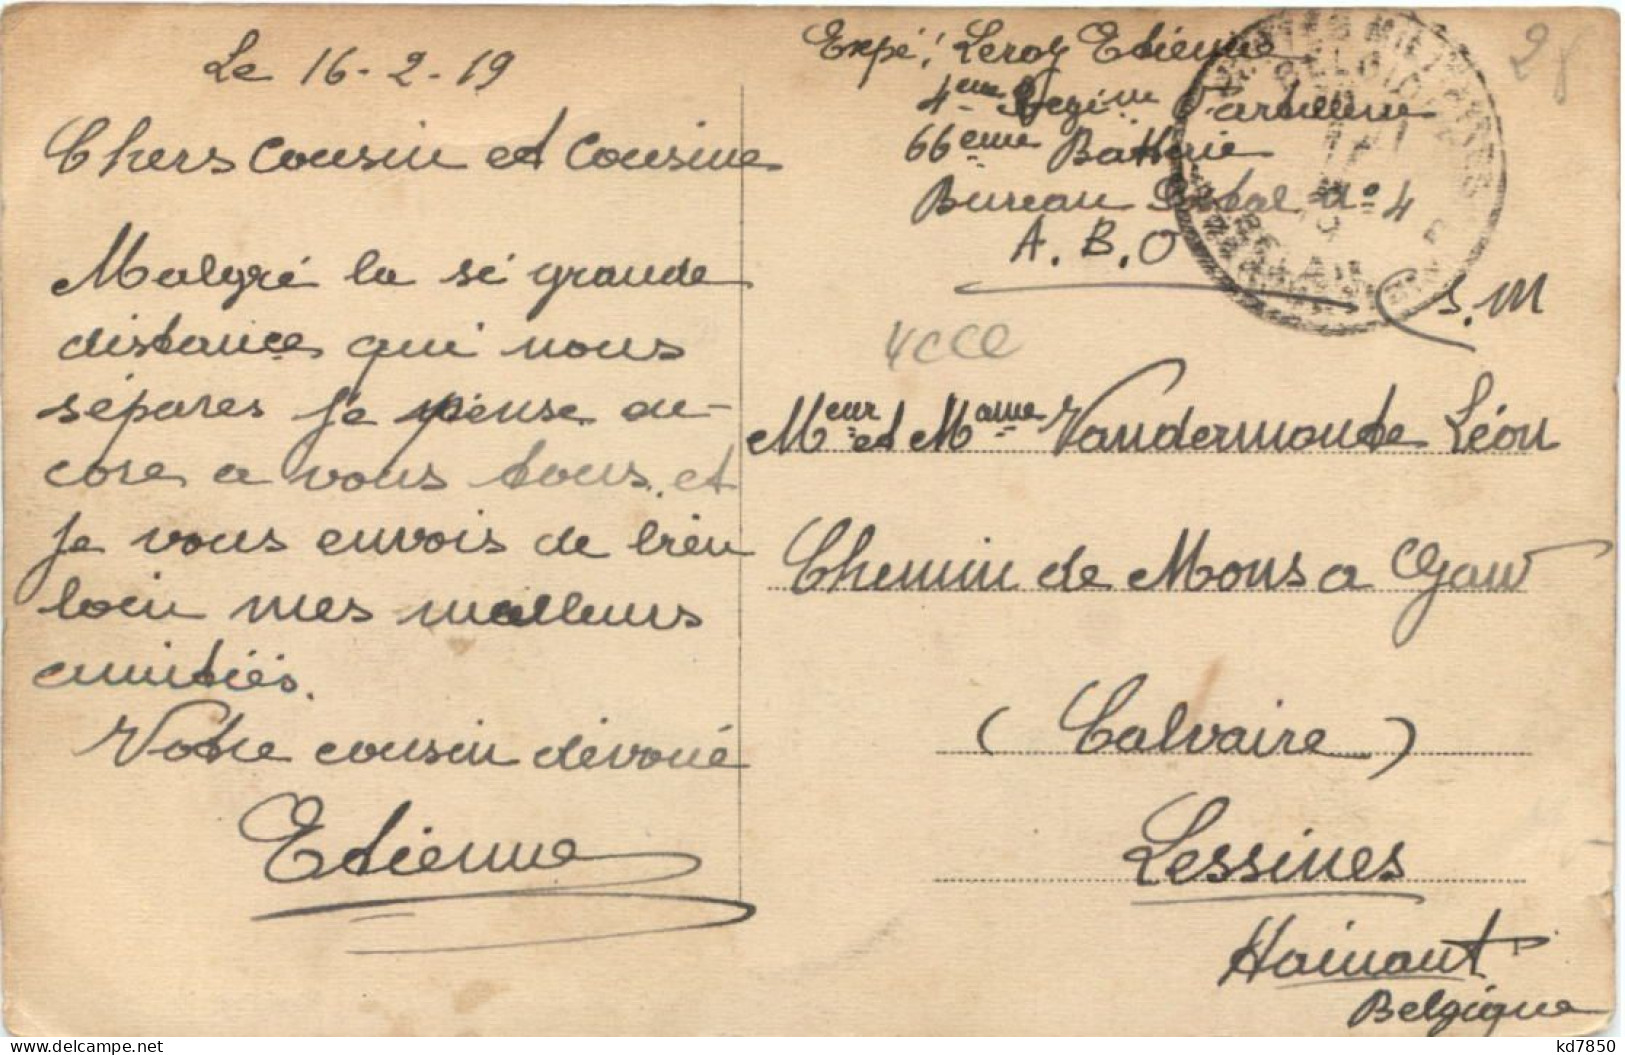 Le 16-2-19
Chers cousin et cousine
Malgré la si grande
distances qui nous
sépares je pense en-
core a vous tous. et
je vous envois de bien
loin mes meilleurs
amitiés.
Votre cousin dévoué
Etienne
Expé: Leroy Etienne
4eme Regim d'artillerie
66eme Batterie
Bureau Postal no 4
A.B.O
S.M
28
4CCC
Meur et Mame Vandermonde Léon
Chemin de Mons a Gaw
(Calvaire)
Lessines
Hainaut
Belgique
kd7850